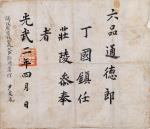 六品通德郎
丁國鎮任
莊陵參奉
者
光武二年四月 日